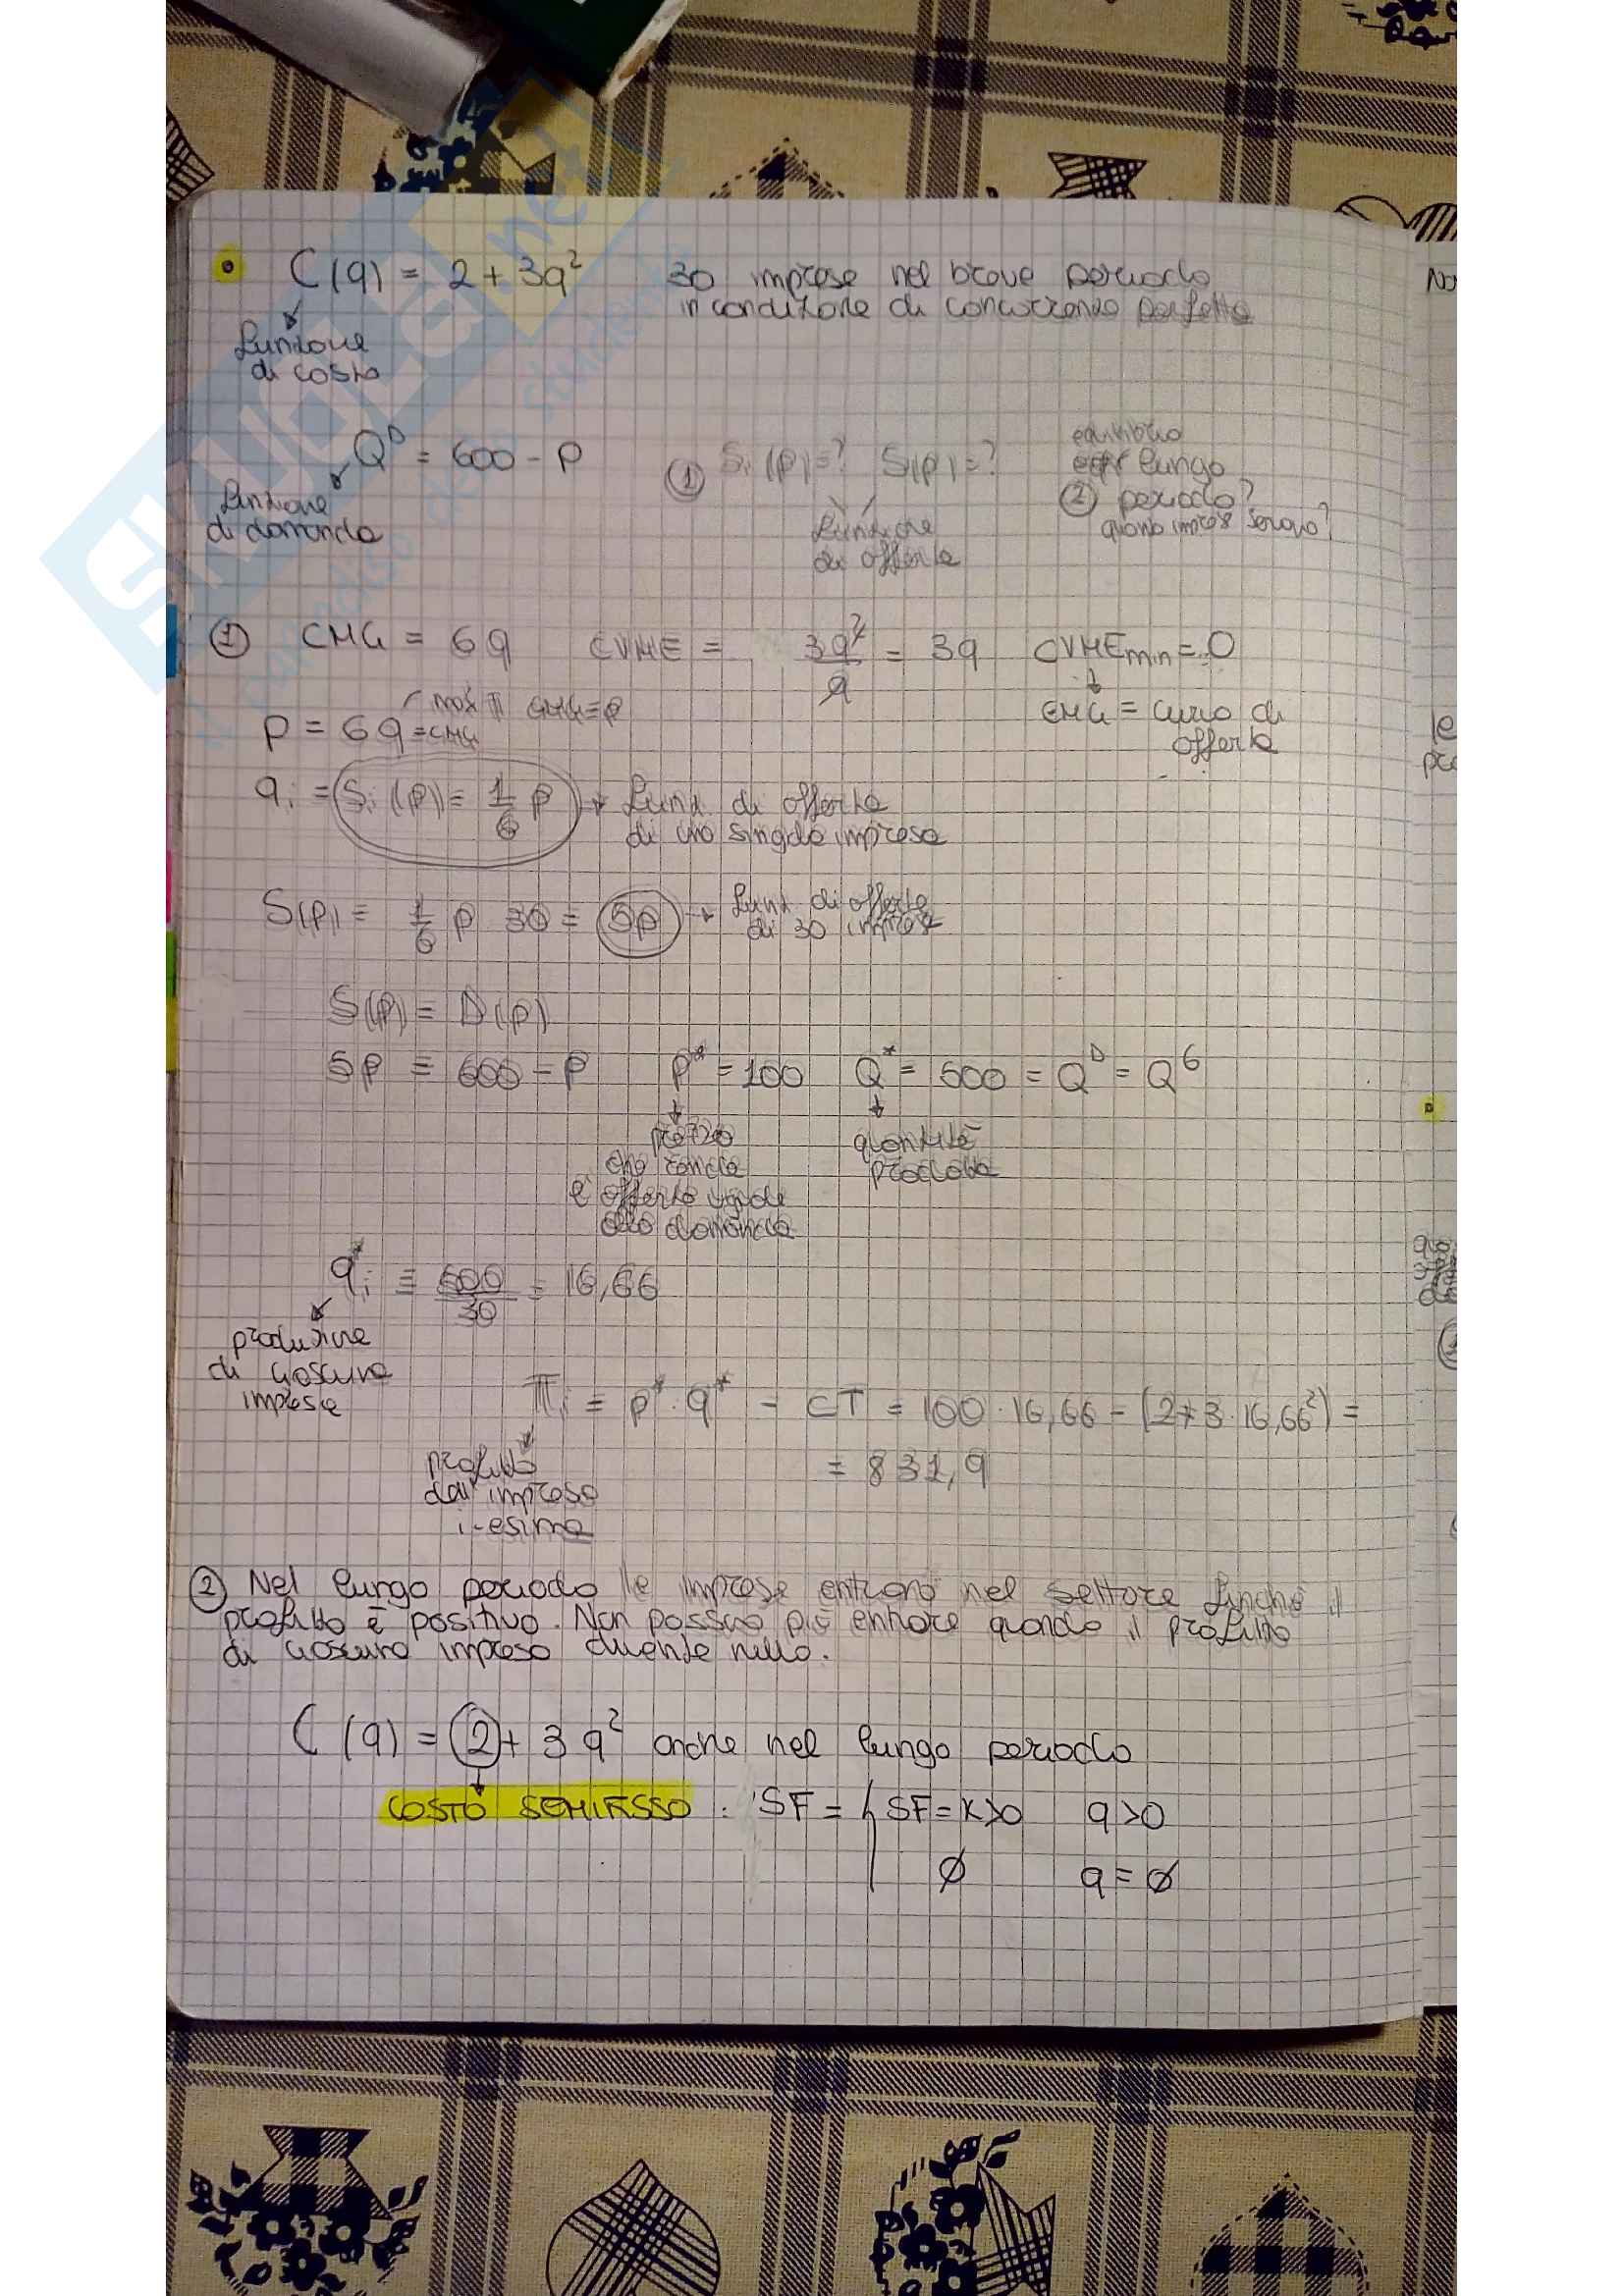 C(q) = 2 + 3q² 30 imprese nel breve periodo
in condizione di concorrenza perfetta
funzione
di costo
Q^D = 600 - p
① Si(p)=? S(p)=?
equilibrio
lungo
② periodo?
quante imprese servono?
funzione
di domanda
funzione
di offerta
① CMG = 6q CVME = 3q²/q = 3q CVMEmin = 0
max π CMG=P
CMG = curva di
offerta
p = 6q = CMG
qi = Si(p) = 1/6 p → funz. di offerta
di una singola impresa
S(p) = 1/6 p 30 = 5p → funz. di offerta
di 30 imprese
S(p) = D(p)
5p = 600 - p p* = 100 Q* = 500 = Q^D = Q^S
prezzo
che rende
l'offerta uguale
alla domanda
quantità
prodotta
q*i = 500/30 = 16,66
produzione
di ciascuna
impresa
πi = p* · q* - CT = 100 · 16,66 - (2+3·16,66²) =
= 831,9
profitto
dell'impresa
i-esima
② Nel lungo periodo le imprese entrano nel settore finché il
profitto è positivo. Non possono più entrare quando il profitto
di ciascuna impresa diventa nullo.
C(q) = 2 + 3q² anche nel lungo periodo
COSTO SEMIFISSO : SF = { SF = K>0 q>0
∅ q=∅
SKUOLA.net
il paradiso dello studente